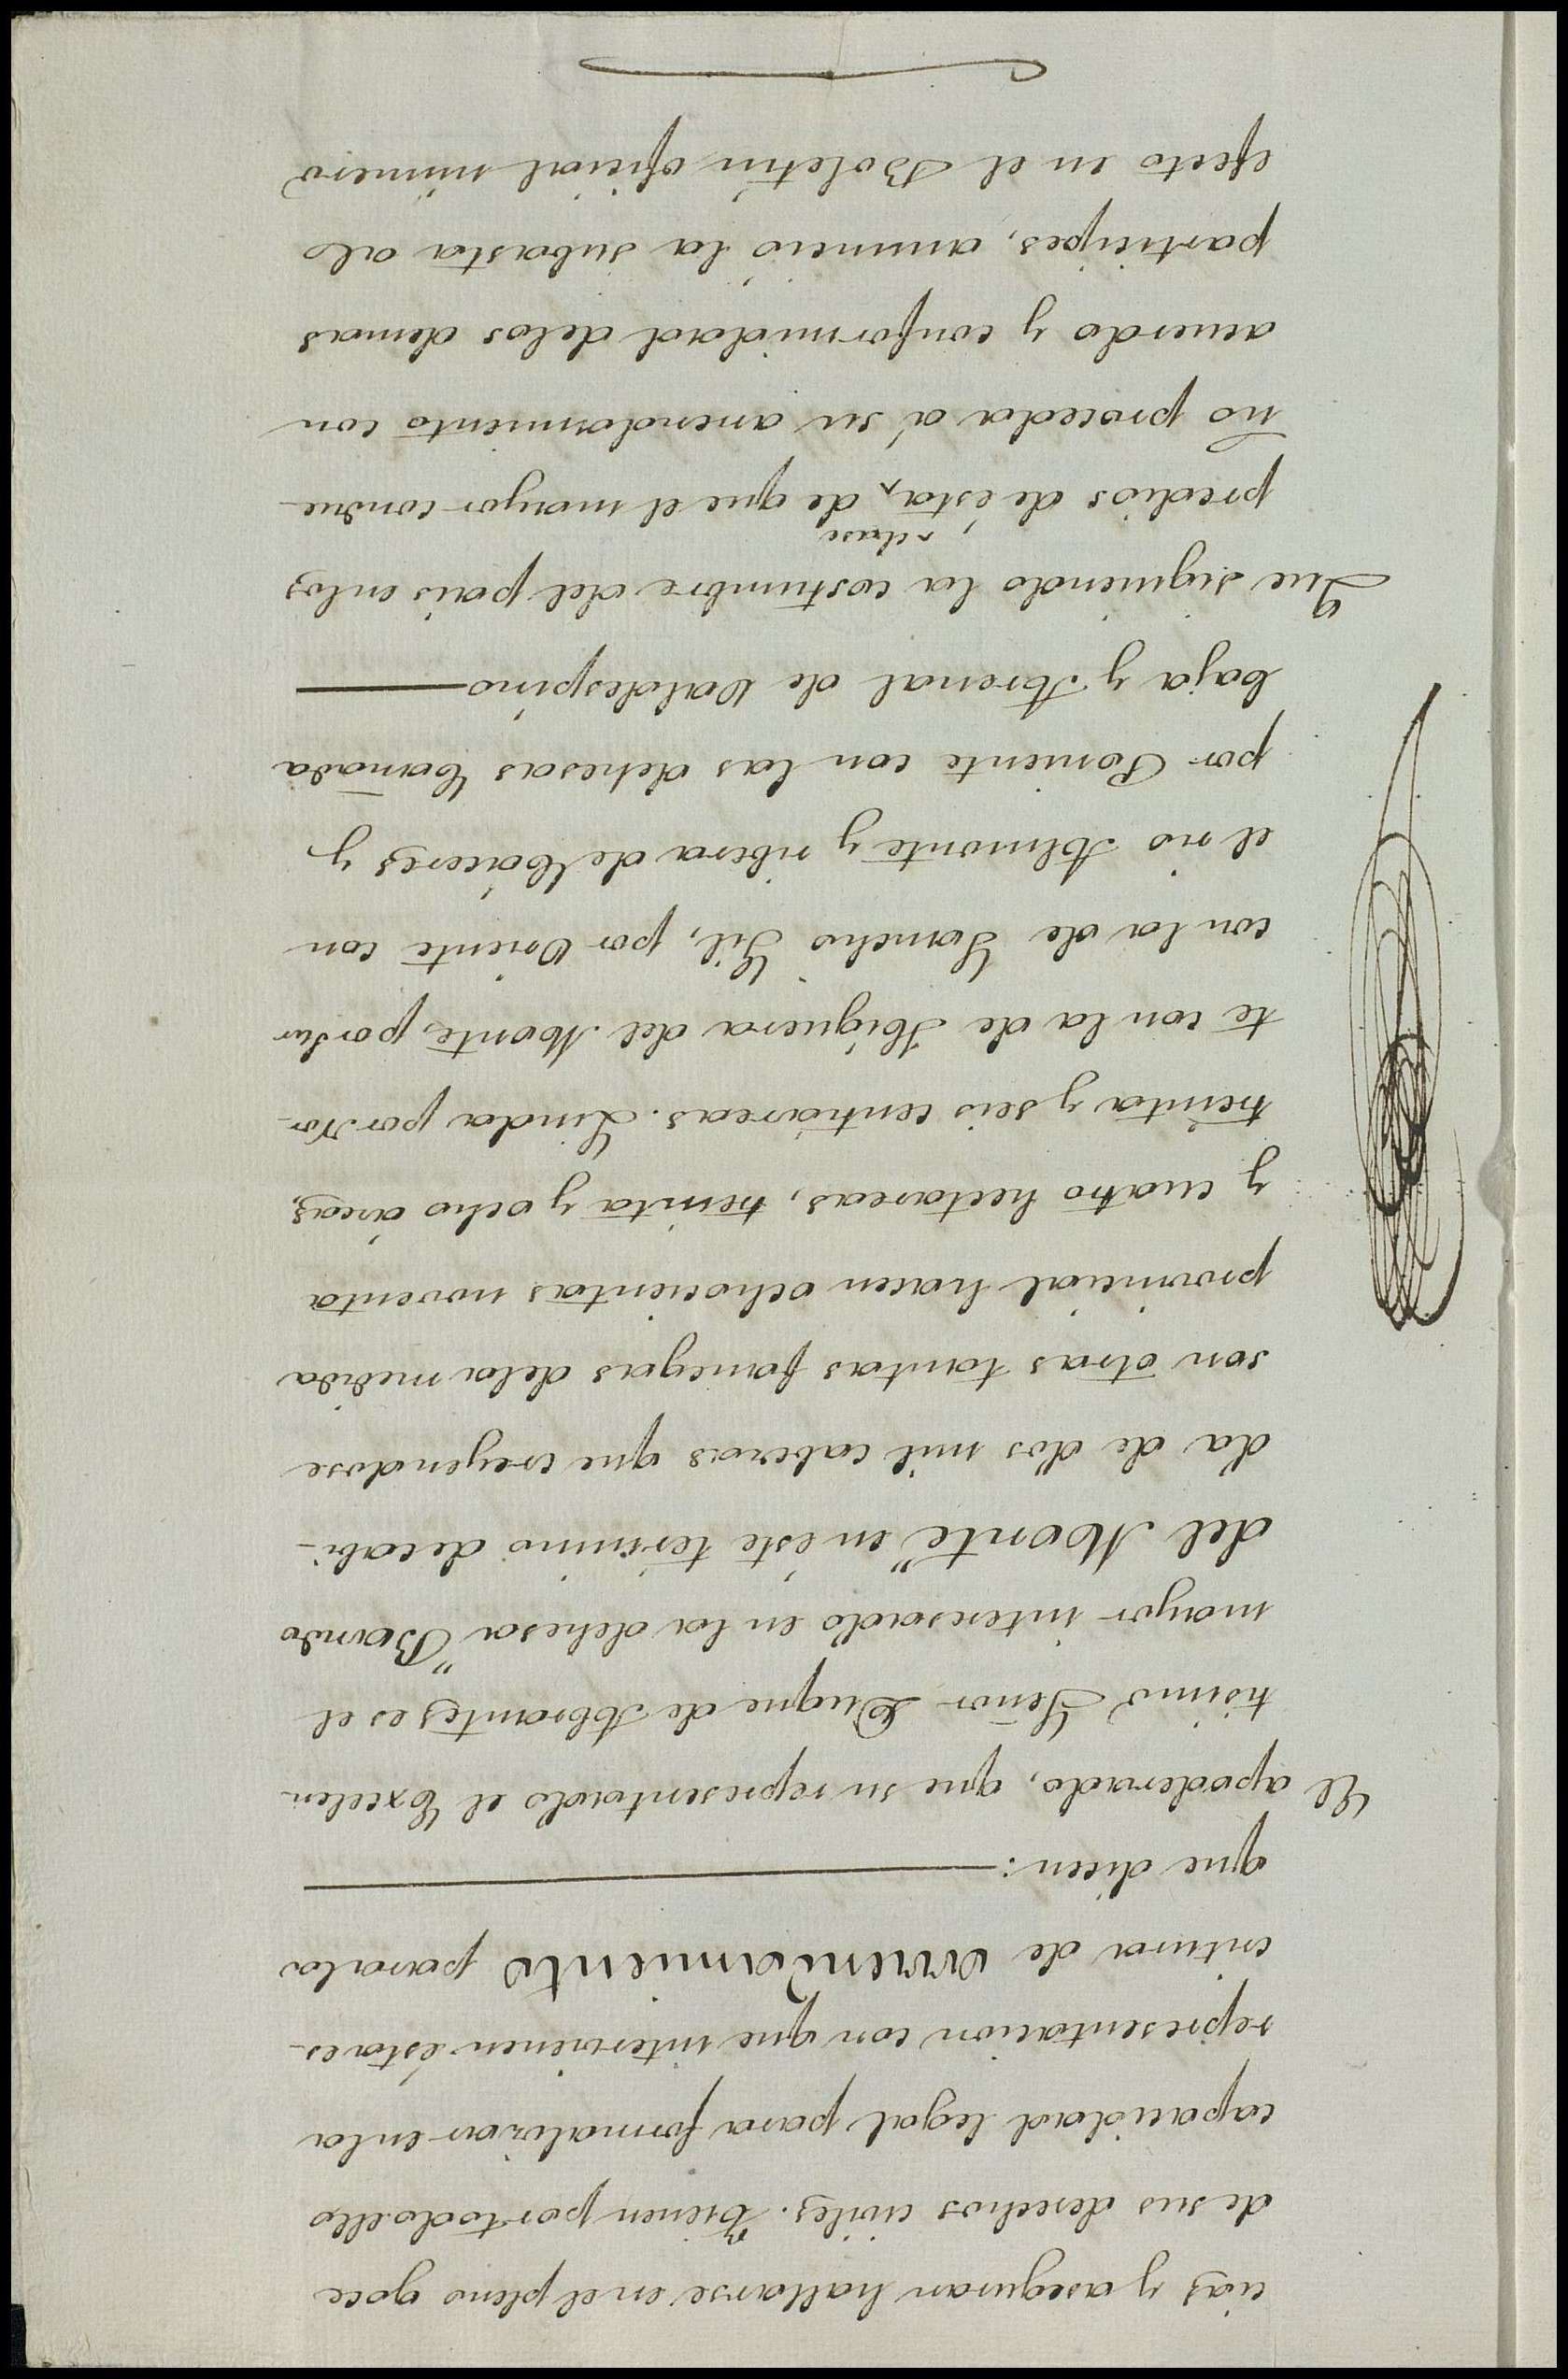 cias y aseguran hallarse en el pleno goce
de sus derechos civiles. Tienen por todo ello
capacidad legal para formalizar en la
representacion con que intervienen ésta es-
critura de arrendamiento para la
que dicen:
El apoderado, que su representado el Excelen-
tisimo Señor Duque de Abrantes es el
mayor interesado en la dehesa "Pardo
del Monte" en éste término de cabi-
da de dos mil cabezas que creyendose
son otras tantas fanegas de la medida
provincial hacen ochocientas noventa
y cuatro hectareas, treinta y ocho áreas,
treinta y seis centiáreas. Linda por Nor-
te con la de Higuera del Monte, por Sur
con la de Sancho Gil, por Oriente con
el rio Almonte y ribera de Cáceres y
por Poniente con las dehesas Cañada
baja y Arenal de Valdespino
Que siguiendo la costumbre del pais en los
predios de ésta ^clase de que el mayor condue-
ño proceda á su arrendamiento con
acuerdo y conformidad de los demas
participes, anunció la subasta al
efecto en el Boletin oficial número